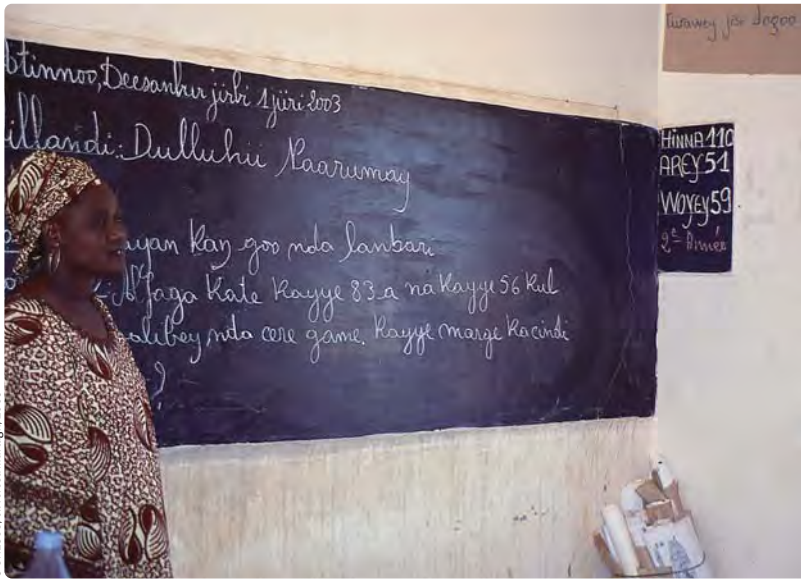 Deesanhur jirbi 1 jiiri 2003
illandi: Dulluhii Naarumay
yan kaŋ goo nda lanbari
Alfaga kate kayye 83. a na kayye 56 kul
alibey nda cere game. kayye marge kacindi
?
HINNA 110
AREY 51
WOYEY 59
2e Année